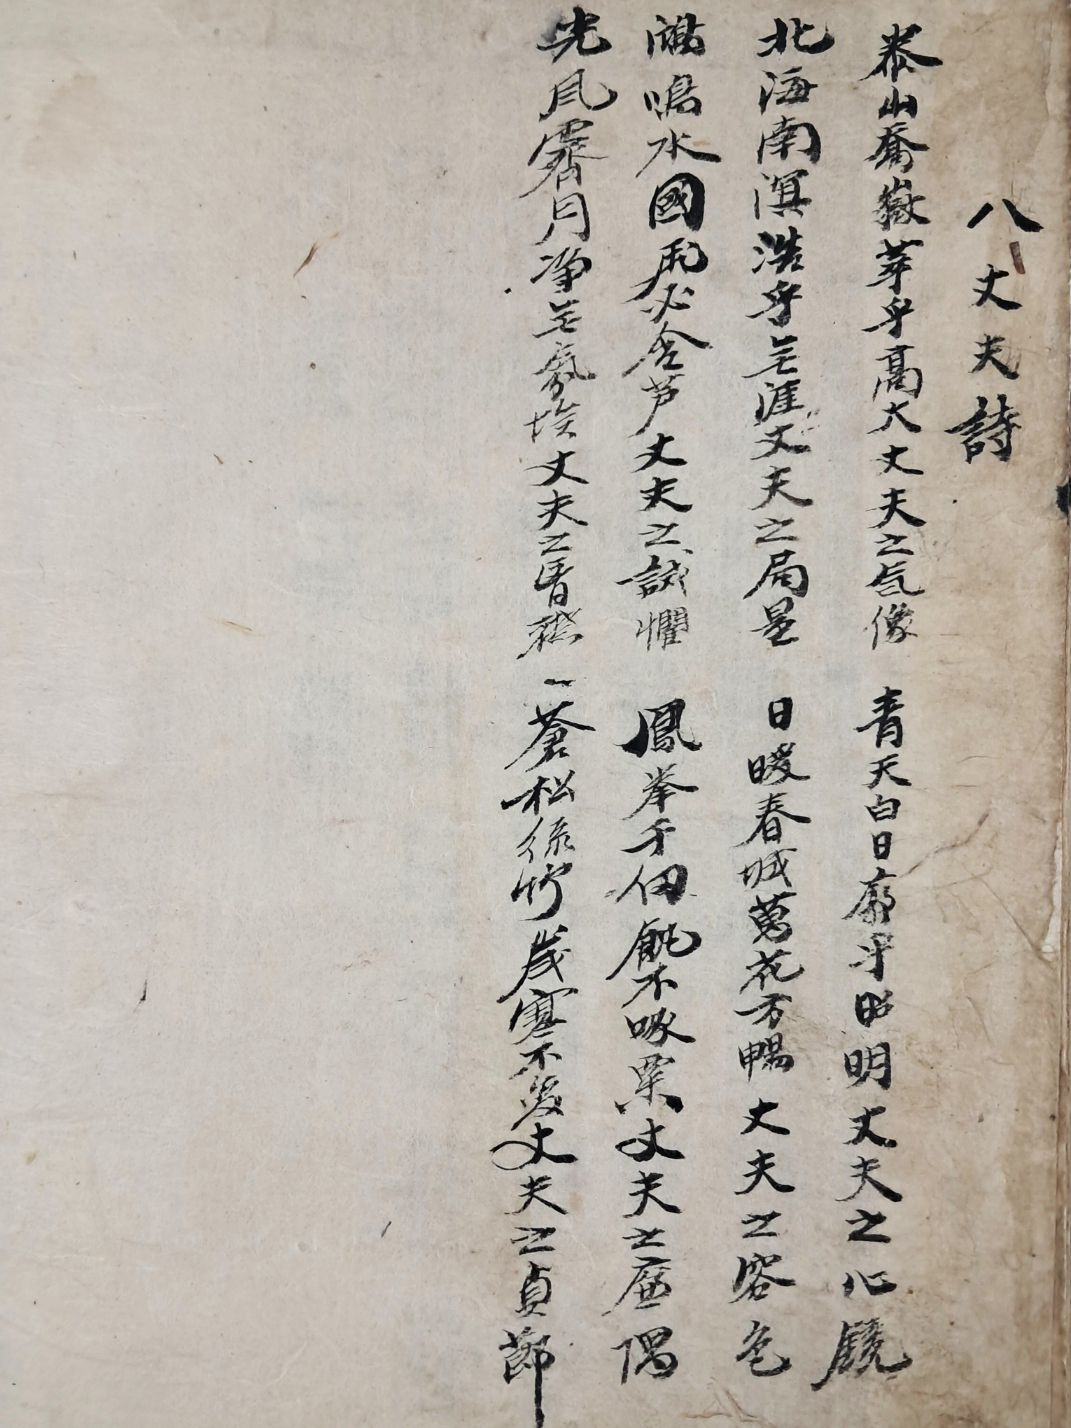 八丈夫詩
泰山喬嶽萃乎高大丈夫之氣像 青天白日廓乎昭明丈夫之心鏡
北海南溟浩乎無涯丈夫之局量 日暖春城萬花方暢丈夫之容色
鴻鳴水國飛必含芦丈夫之誠懼 鳳峯千仞飢不啄粟丈夫之廉隅
光風霽月淨無氛埃丈夫之胷襟 蒼松綠竹歲寒不變丈夫之貞節